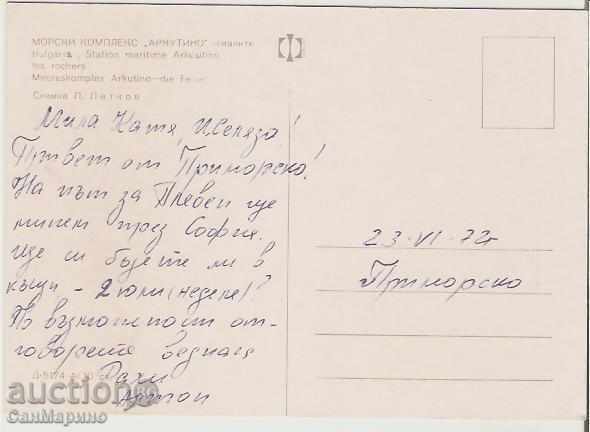 МОРСКИ КОМПЛЕКС „АРКУТИНО" скалите
Bulgaria. Station maritime Arkutino
les rochers
Meereskomplex Arkutino—die Felsen
Снимка Л. Петков
Мила Катя,
Привет от Приморско!
На път за Плевен ще
минем през София.
Ще си бъдете ли в
къщи - 2 юли (неделя)?
По възможност от-
говорете веднага
Антон
23.VI.72г
Приморско
Д-9174
auction.BG
СанМарино